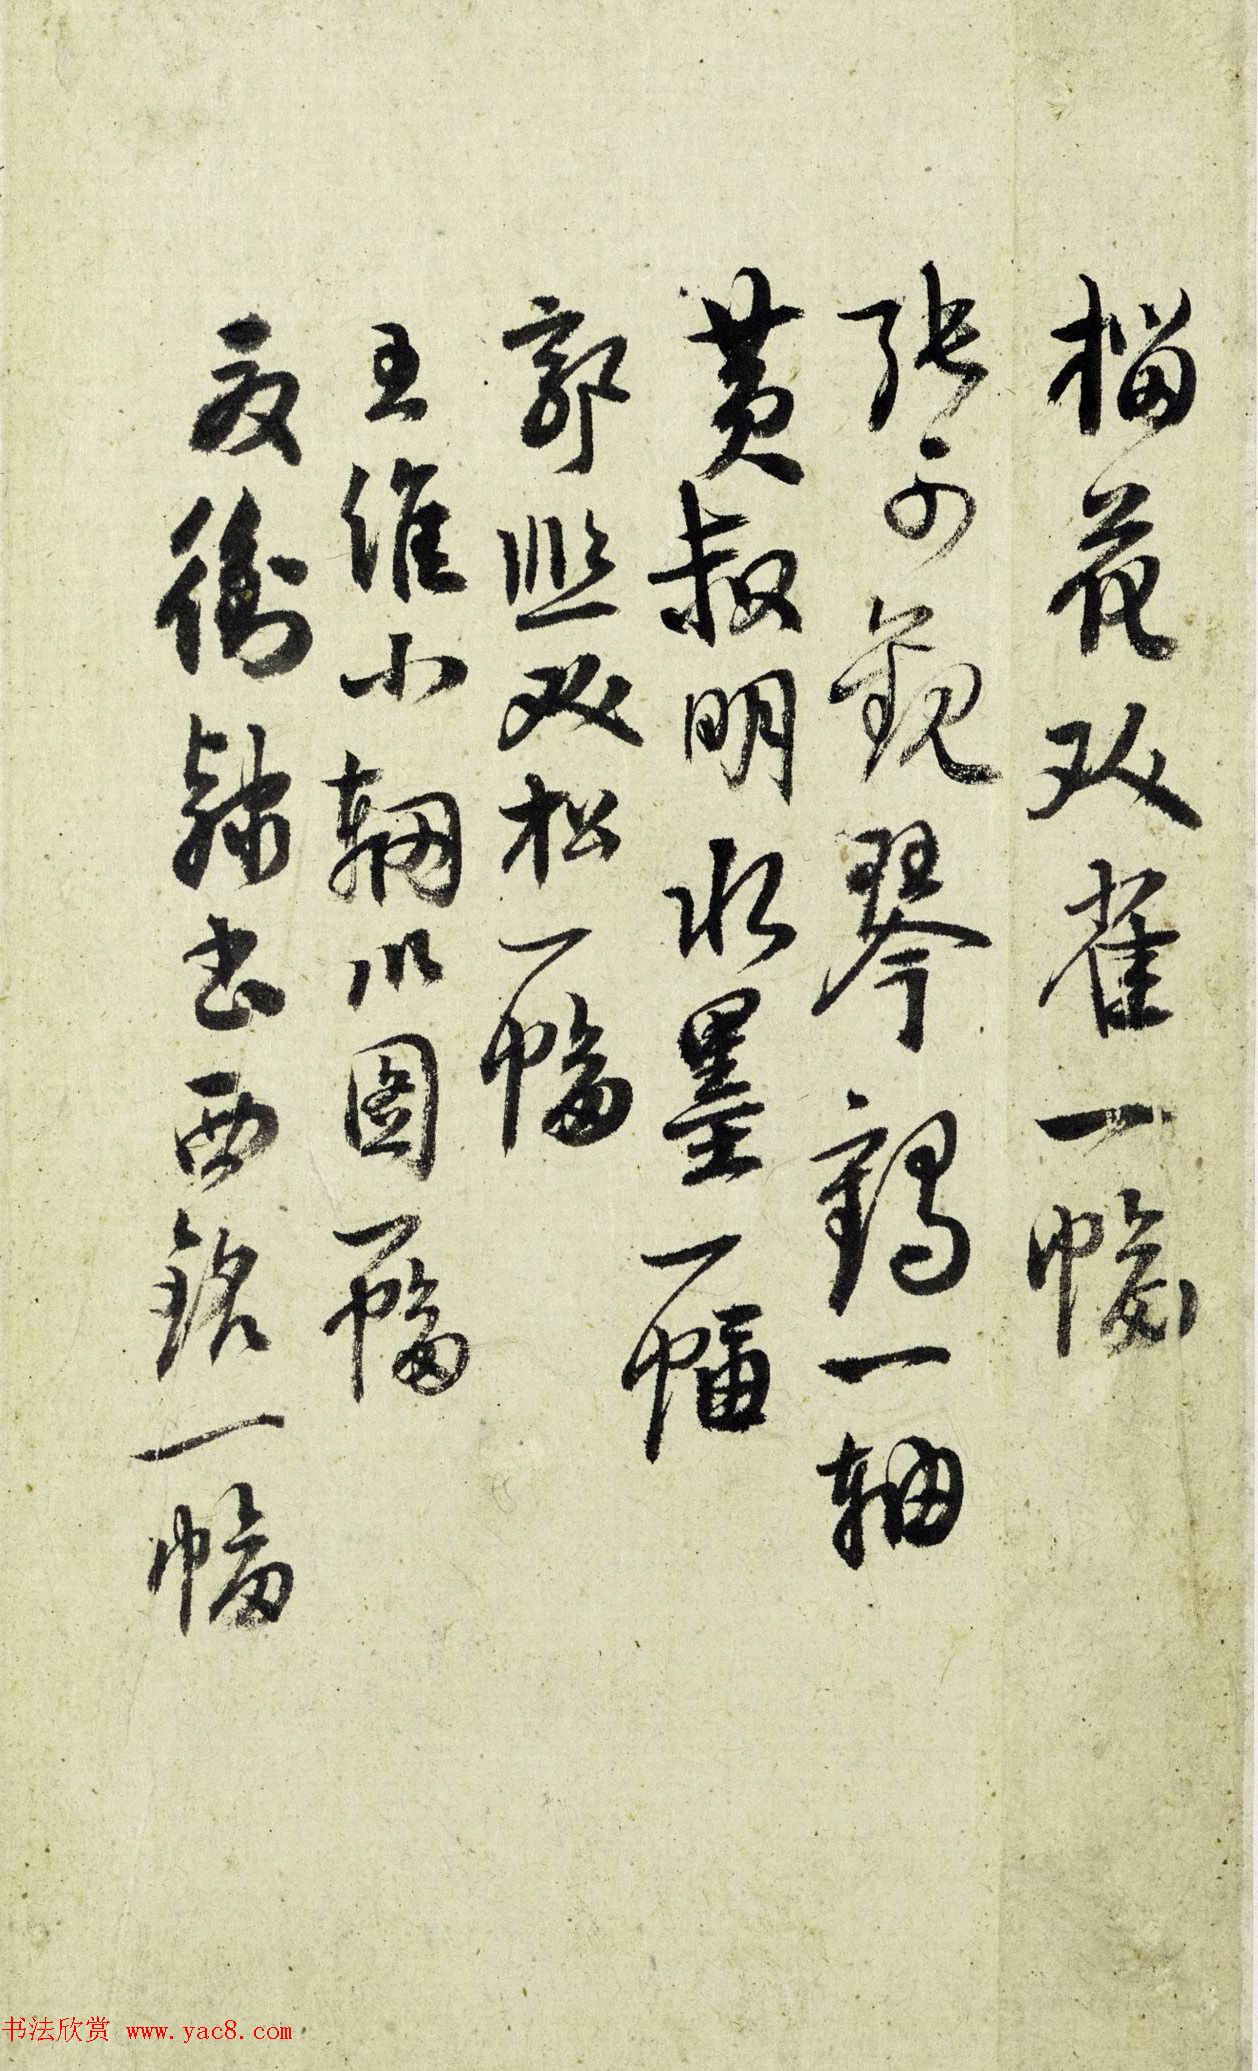 榴花双雀一幅
张可观琴鹤一轴
黄叔明水墨一幅
郭熙双松一幅
王维小辋川图一幅
文衡隸书西铭一幅
书法欣赏 www.yac8.com